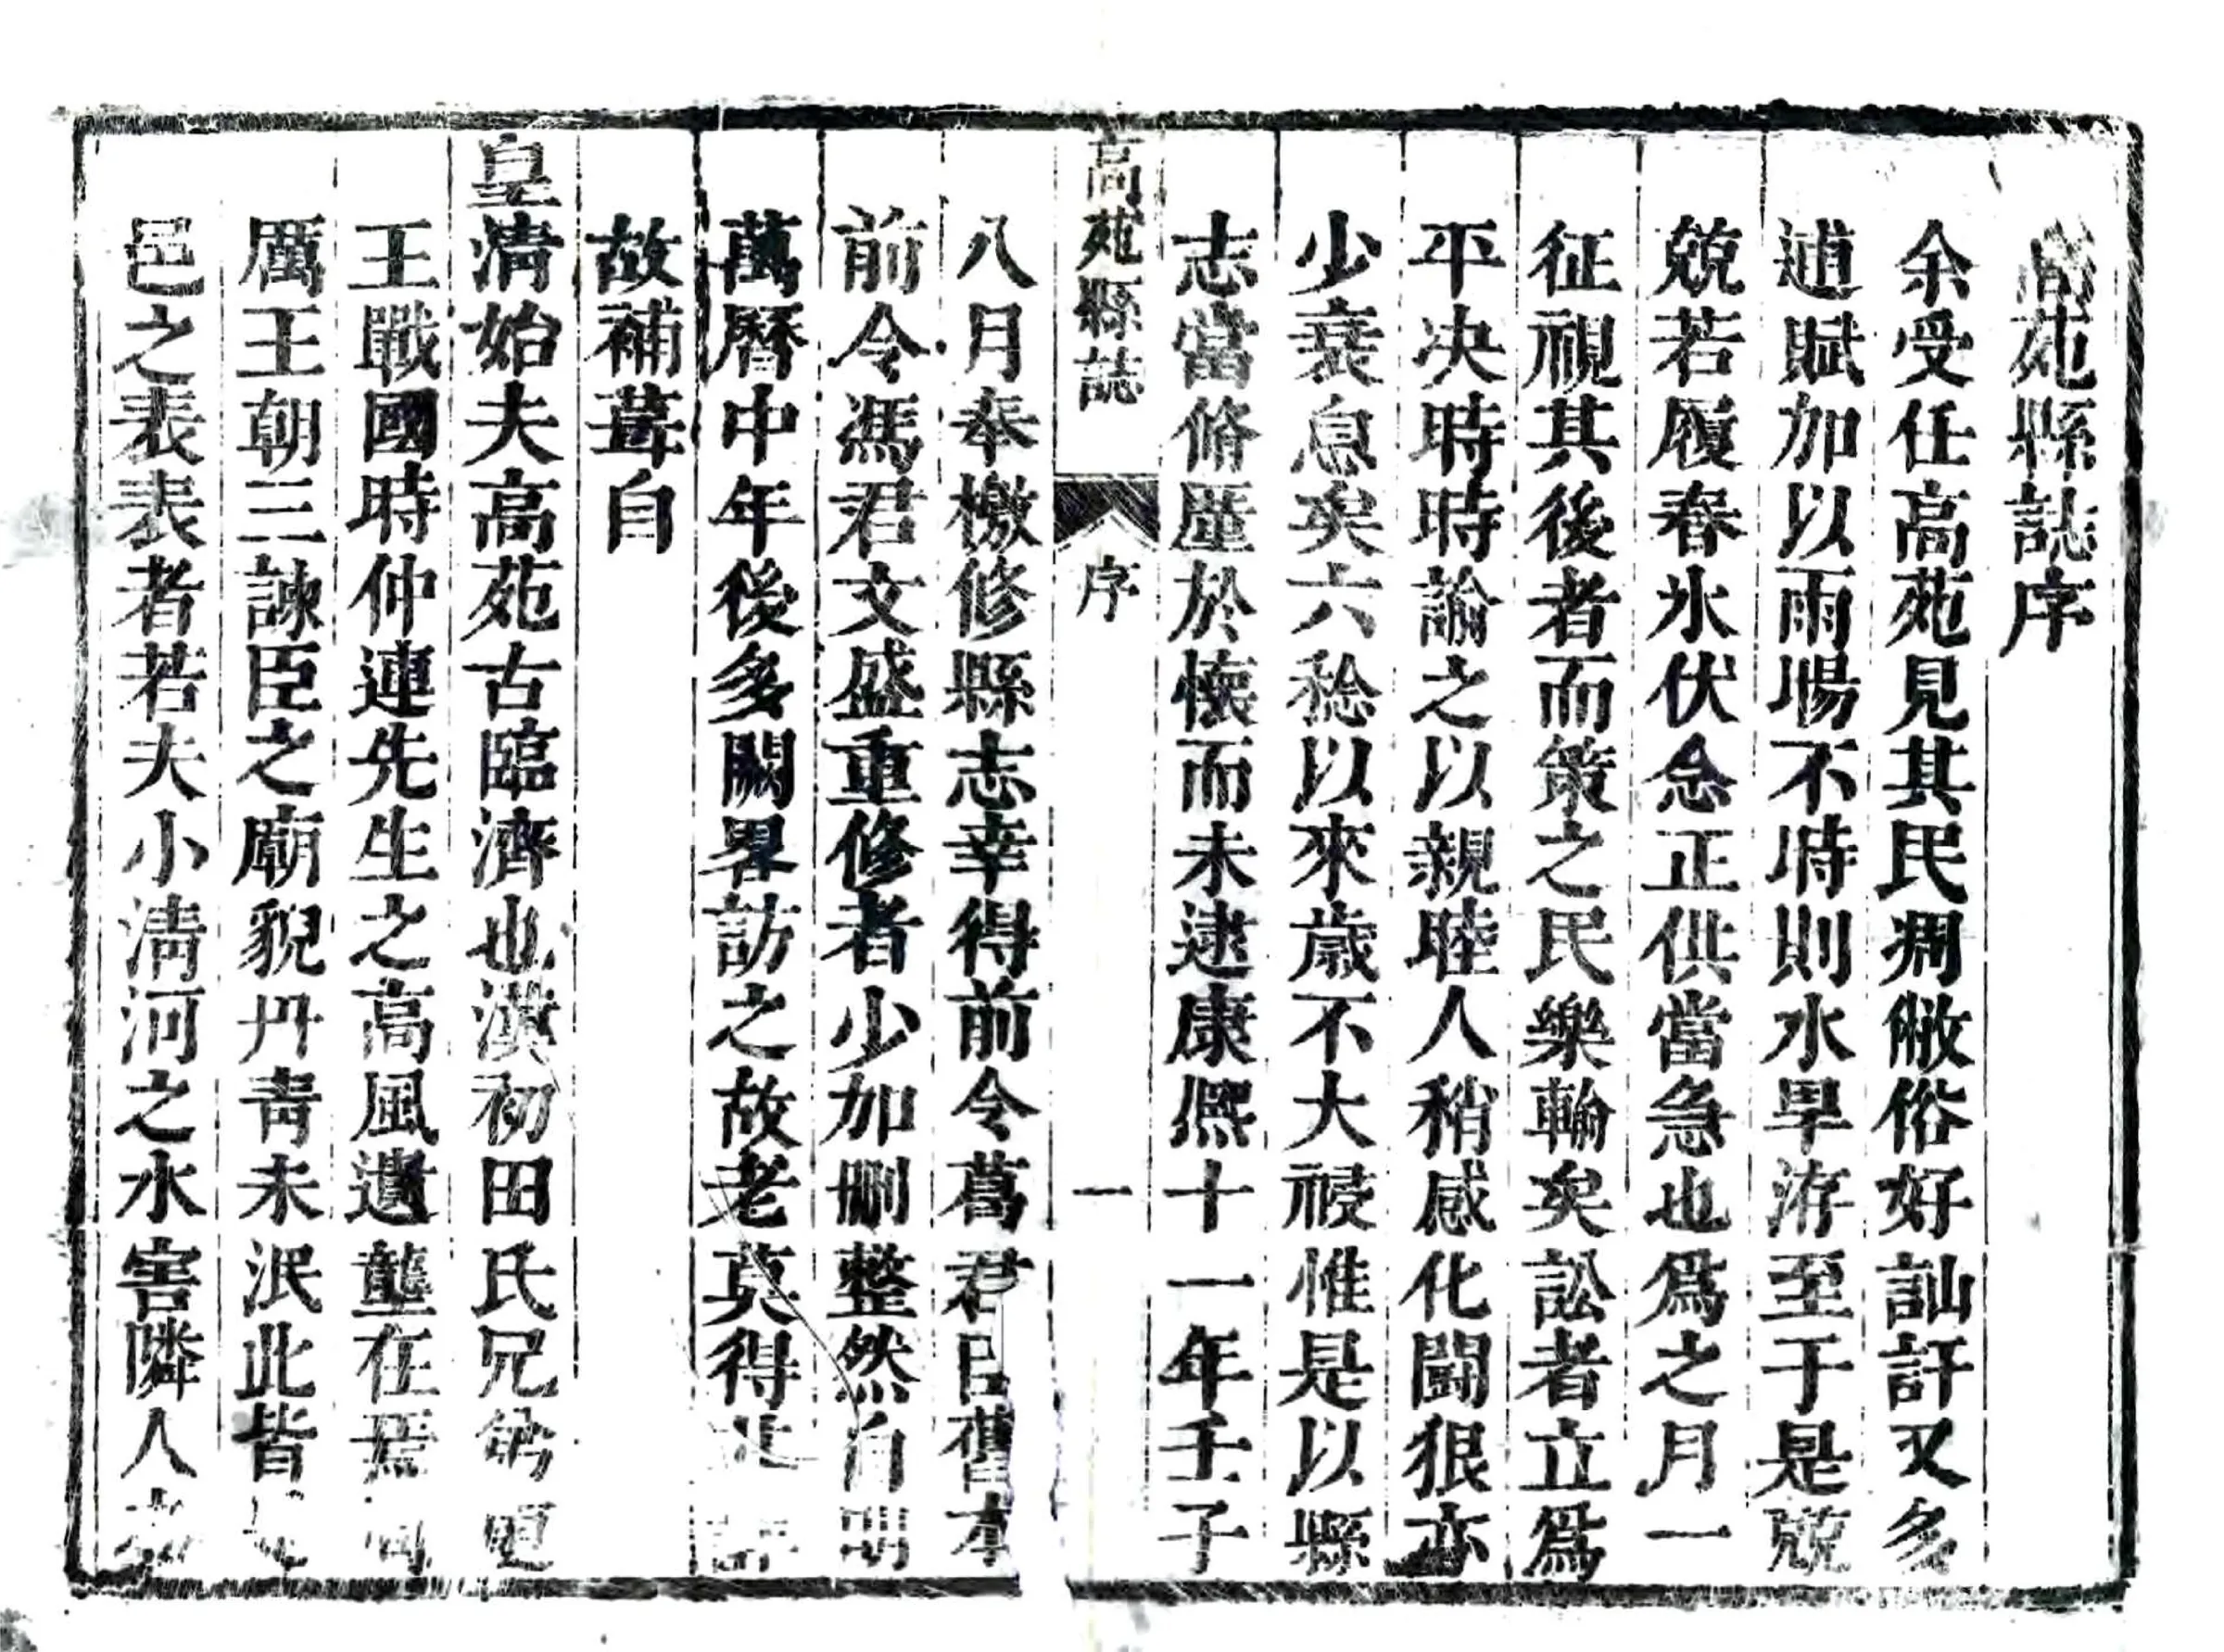 高苑縣誌序
余受任高苑見其民凋敝俗好訕訐又多
逋賦加以雨暘不時則水旱洊至于是兢
兢若履春氷伏念正供當急也爲之月一
征視其後者而策之民樂輸矣訟者立爲
平决時時諭之以親睦人稍感化鬪狠亦
少衰息矣六稔以來歲不大祲惟是以縣
志當脩厪於懷而未逮康熈十一年壬子
高苑縣誌
序
一
八月奉檄修縣志幸得前令葛君臣舊本
前令馮君文盛重修者少加刪整然自明
萬曆中年後多闕畧訪之故老莫得其詳
故補葺自
皇清始夫高苑古臨濟也漢初田氏兄弟更
王戰國時仲連先生之高風遺壟在焉
厲王朝三諫臣之廟貌丹青未泯此皆
邑之表表者若夫小清河之水害隣人